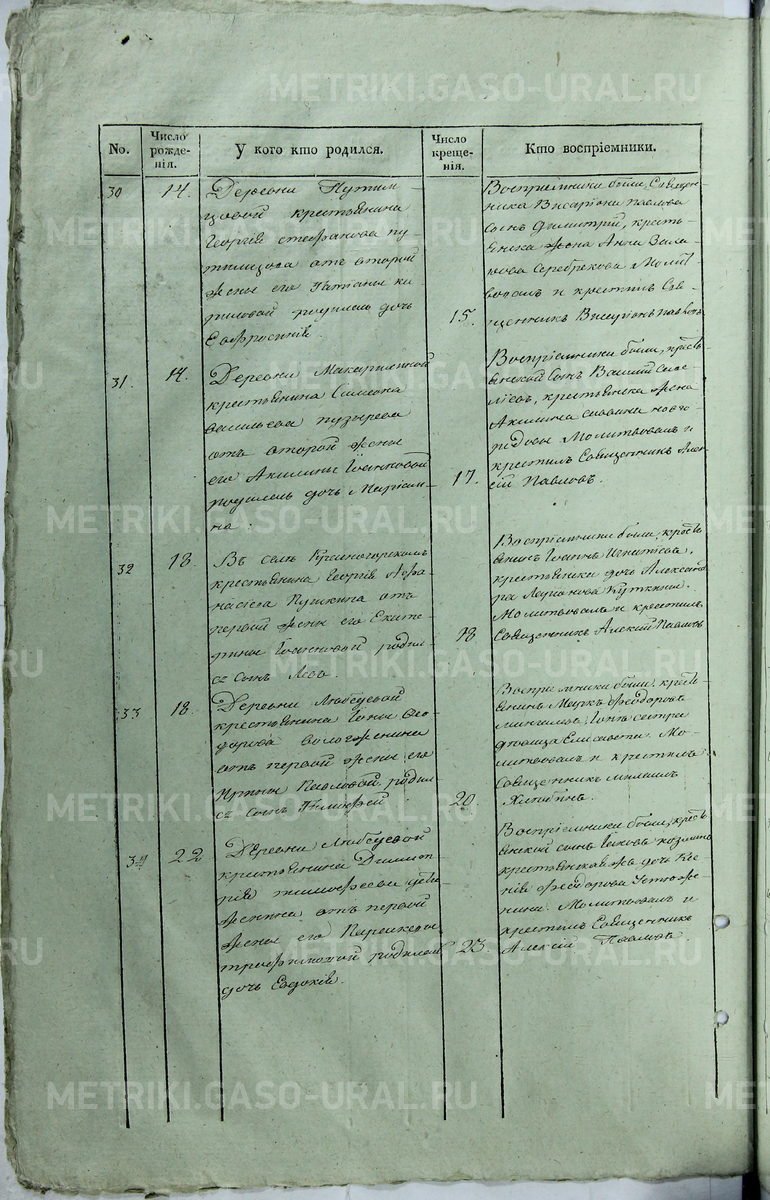 METRIKI.GASO-URAL.RU
No.
Число рожде-нія.
У кого кто родился.
Число креще-нія.
Кто воспріемники.
30
14.
Деревни Путил-
цовой крестьянина
Георгія Стефанова Пу-
тилцова отъ второй
жены его Татіаны Ки-
риловой родилась дочь
Евфросинія.
15.
Воспріемники были, Священ-
ника Висаріона Павлова
сынъ Димитрій, кресть-
янска жена Анна
Серебрекова Молит
вовалъ и крестилъ Свя-
щенникъ Висаріонъ Павловъ
31.
14.
Деревни
крестьянина Симеона
Васильева Пузырева
отъ второй жены
его Акилины
родилась дочь Маріам-
на.
17.
Воспріемники были, кресть
янской сынъ Василій Саве-
лѣевъ, крестьянска жена
Акилина Савина
Молитвовалъ и
крестилъ Священникъ Алек-
сій Павловъ.
32
18.
Въ селѣ Красногорскомъ
крестьянина Георгія Афа-
насіева Пушкина отъ
первой жены его Екате-
рины Іоанновой родил-
ся сынъ
18
Воспріемники были, кресть
янинъ Іоаннъ Игнатіевъ,
крестьянки дочь Александ-
ра
Молитвовалъ и крестилъ
Священникъ Алексій Павловъ
33
18.
Деревни Любцевой
крестьянина Іоны Ѳео-
дорова Вологженина
отъ первой жены его
Ирины Павловой родил
ся сынъ Тимофей.
20.
Воспріемники были, кресть
янинъ Маркъ Феодоровъ
сестра
дѣвица Елисавета. Мо-
литвовалъ и крестилъ
Священникъ Михаилъ
34
22
Деревни Любцевой
крестьянина Димит-
рія Тимофеева
отъ первой
жены его Параскевы
Трофимовой родилась
дочь Евдокія.
23.
Воспріемники были, кресть
янской сынъ Іаковъ Козмин
крестьянская дочь Ксе-
нія Феодорова
Молитвовалъ и
крестилъ Священникъ
Алексій Павловъ.